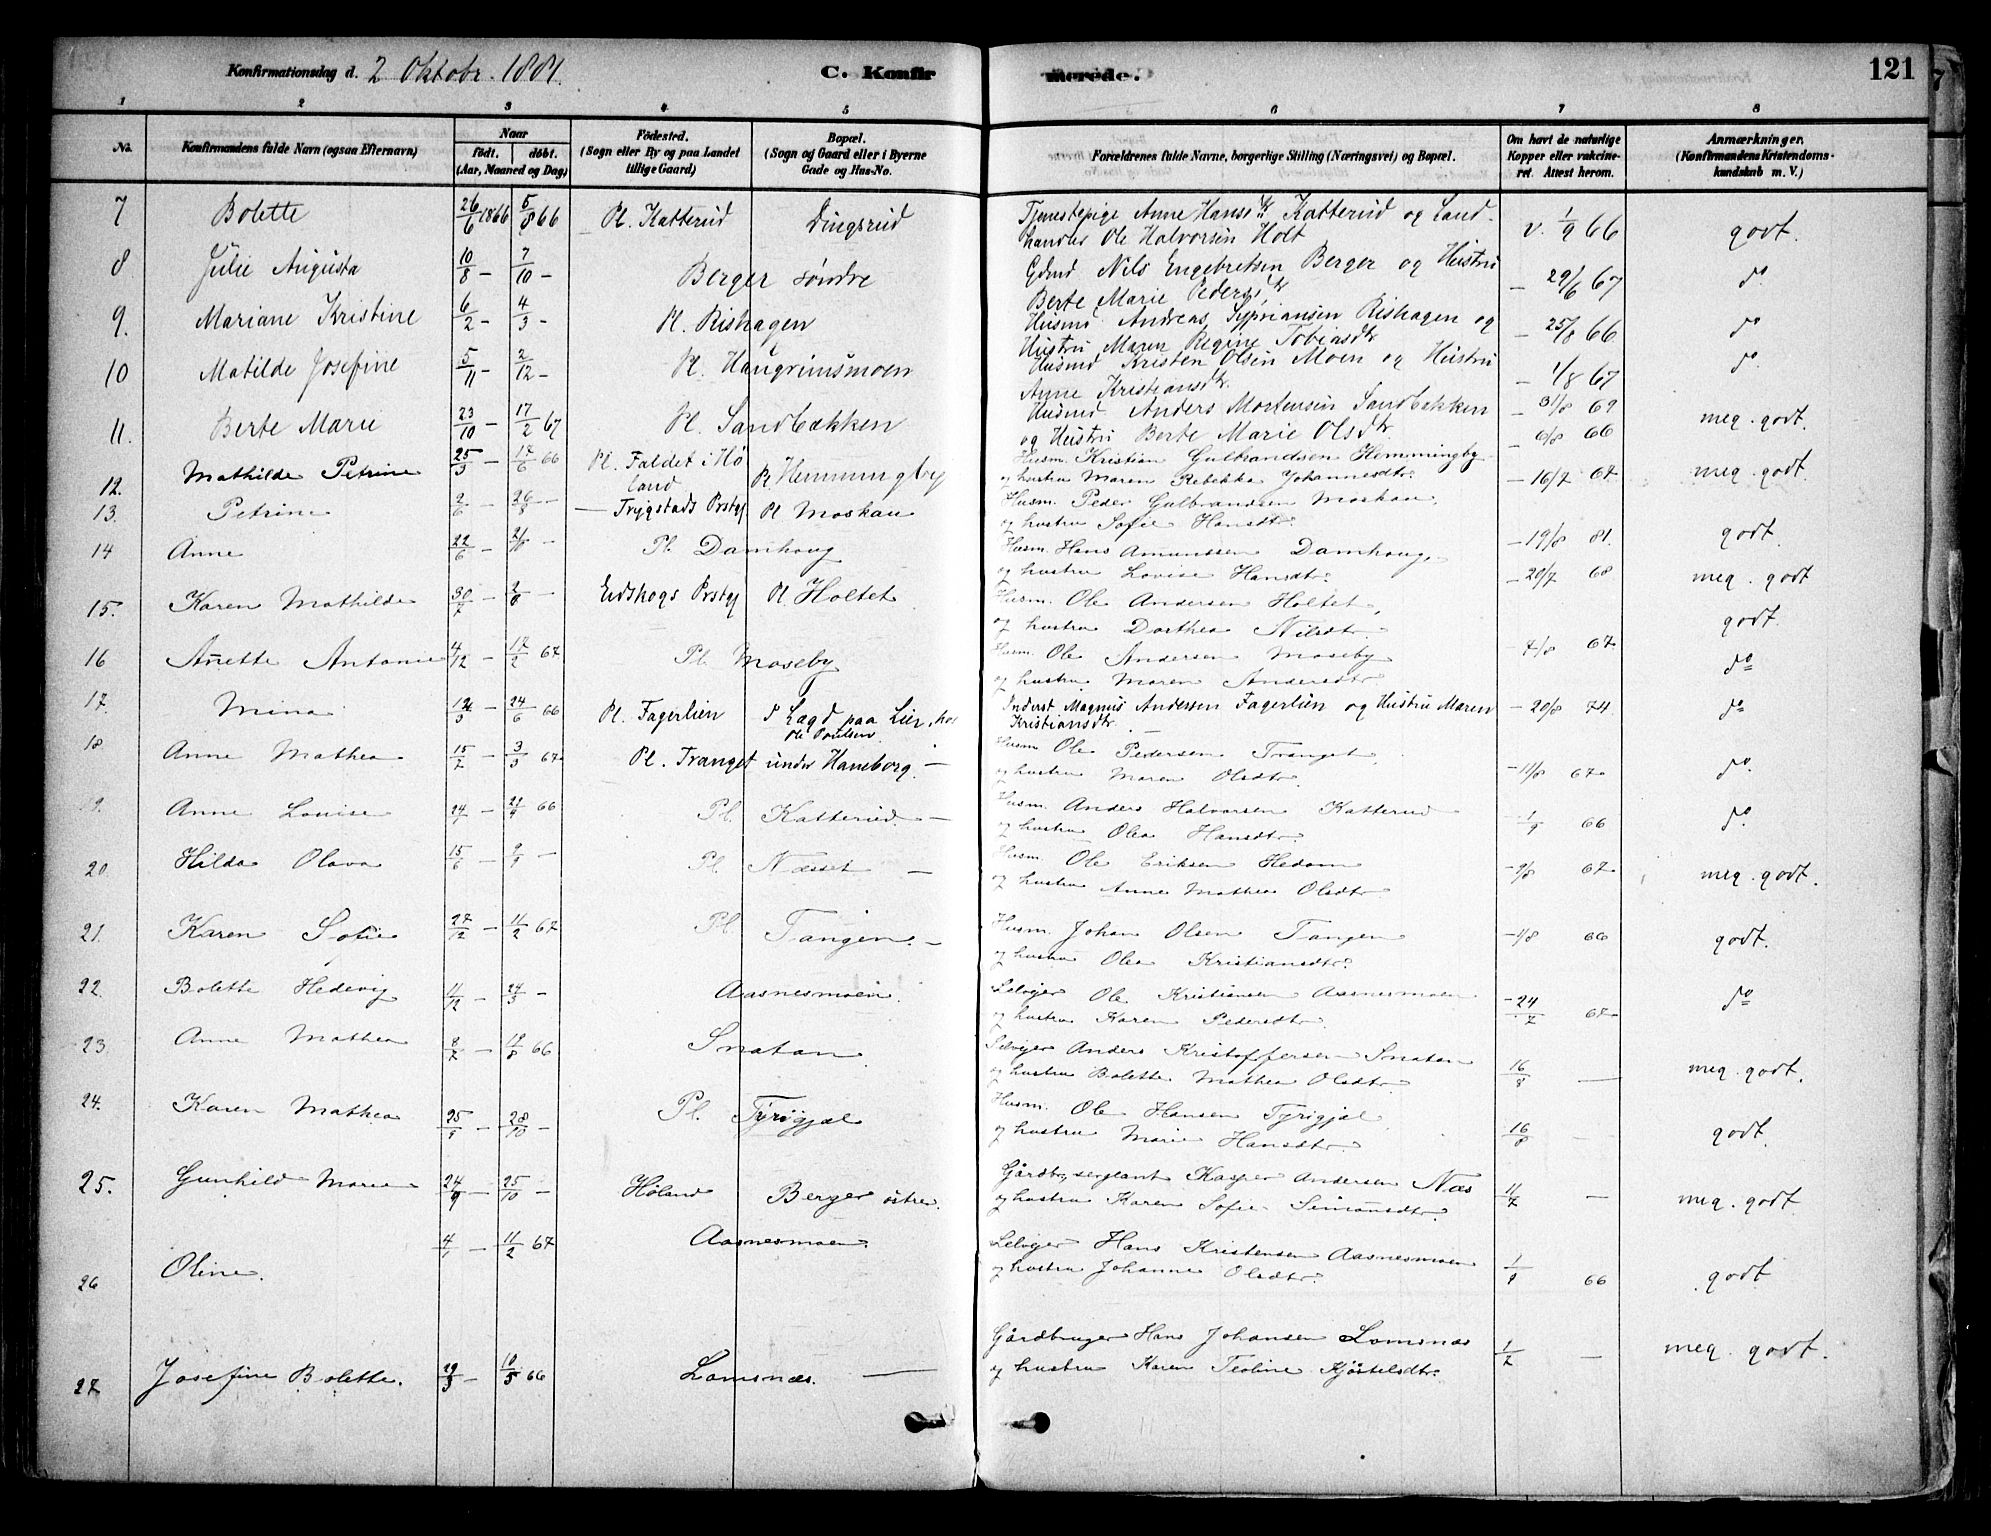 Konfirmationsdag d. 2 Oktobr. 1881. C. Konfirmerede. 121
1 2 3 4 5 6 7 8
No. Konfirmandens fulde Navn (ogsaa Efternavn) Naar født. døbt. (Aar, Maaned og Dag) Fødested. (Sogn eller By og paa Landet tillige Gaard) Bopæl. (Sogn og Gaard eller i Byerne Gade og Hus-No. Forældrenes fulde Navne, borgerlige Stilling (Næringsvei) og Bopæl. Om havt de naturlige Kopper eller vakcineret. Attest herom. Anmærkninger. (Konfirmandens Kristendomskundskab m. V.)
7 Bolette 26/6 1866 5/8 66 Pl. Katterud Dingsrud Tjenestepige Anne Hansdtr Katterud og Land-
handler Ole Halvorsen Holt v. 1/9 66 godt.
8 Julie Augusta 10/8 – 7/10 – Berger søndre Gdmd Nils Engebretsen Berger og Hustru
Berte Marie Pedersdtr – 29/6 67 do
9. Mariane Kristine 6/2 – 4/3 – Pl. Rishagen Husmd. Andreas Sypriansen Rishagen og
Hustru Maren Regine Tobiasdtr – 25/8 66 do
10 Matilde Josefine 5/11 – 2/12 – Pl. Haugrimsmoen Husmd Kristen Olsen Moen og Hustru
Anne Kristiansdtr. – 1/8 67 do
11. Berte Marie 23/10 – 17/2 67 Pl. Sandbækken Husmd Anders Mortensen Sandbækken – 31/8 69
og Hustru Berte Marie Olsdtr. meg. godt
12. Mathilde Petrine 25/3 – 17/6 66 Pl. Faldet i Hø
land Pl Hemmingby Husm. Kristian Gulbrandsen Hemmingby – 6/8 66
og hustru Maren Rebekka Johannesdtr. meg. godt
13. Petrine 2/6 – 26/8 – – Trygstads Prstgj Pl Moskau Husm. Peder Gulbrandsen Moskau – 16/7 67
og hustru Sofie Hansdtr. godt.
14 Anne 22/6 – – Pl. Damhoug Husm. Hans Amundsen Damhoug, – 19/8 81.
og hustru Lovise Hansdtr. meg. godt
15. Karen Mathilde 30/7 – – Eidskogs Prstgj Pl. Holtet Husm. Ole Andersen Holtet, – 20/7 68
og hustru Dorthea Nilsdtr. godt.
16 Anette Antonie 4/12 – 17/2 67 Pl. Moseby Husm. Ole Andersen Moseby – 7/8 67
og hustru Maren Andersdtr do
17. Mina – 24/6 66 Pl. Fagerlien P Lægd paa Lier, hos
Ole Poulsen Inderst Magnus Andersen Fagerlien og Hustru Maren
Kristiansdtr. – 20/8 74 do
18. Anne Mathea 15/2 – 3/3 67 Pl. Tranget under Haneborg. – Husm Ole Pedersen Tranget,
og hustru Maren Olsdtr. – 11/8 67 do.
19. Anne Lovise – 66 Pl. Katterud. – Husm. Anders Halvorsen Katterud
og hustru Olea Hansdtr. – 1/9 66 do.
20. Hilda Olava 15/6 – 9/9 – Pl. Næsset – Husm. Ole Eriksen Hedom
og hustru Anne Mathea Olsdtr. – 9/8 67 meg. godt.
21. Karen Sofie 27/12 – 11/2 67 Pl. Tangen. – Husm. Johan Olsen Tangen
og hustru Olea Kristiansdtr. – 1/8 66 godt.
22. Bolette Hedevig 11/12 – 24/3 – Aasnesmoen. Selvejer Ole Kristiansen Aasnesmoen
og hustru Karen Pedersdtr. – 24/7 67 do
23. Anne Mathea 8/7 – 19/8 66 Snatan Selvejer Anders Kristoffersen Snatan
og hustru Bolette Mathea Olsdtr 16/8 — meg. godt.
24. Karen Mathea 25/9 – 28/10 – Pl. Tyrigjæl Husm. Ole Hansen Tyrigjæl
og hustru Marie Hansdtr. 16/8 – godt.
25. Gunhild Marie 24/9 – 25/10 – Høland Berger østre. Gårdbr, sergeant Kasper Andersen Næs
og hustru Karen Sofie Simonsdtr. 11/7 – meg. godt.
26 Oline. 4/1 – 11/2 67 Aasnesmoen. Selvejer Hans Kristensen Aasnesmoen
og hustru Johanne Olsdtr. 1/9 66 godt
27 Josefine Bolette. 29/3 – 10/5 66 Lomsnæs. — Gårdbruger Hans Johansen Lomsnæs
og hustru Karen Teoline Kjøstelsdtr. 1/7 – meg. godt.